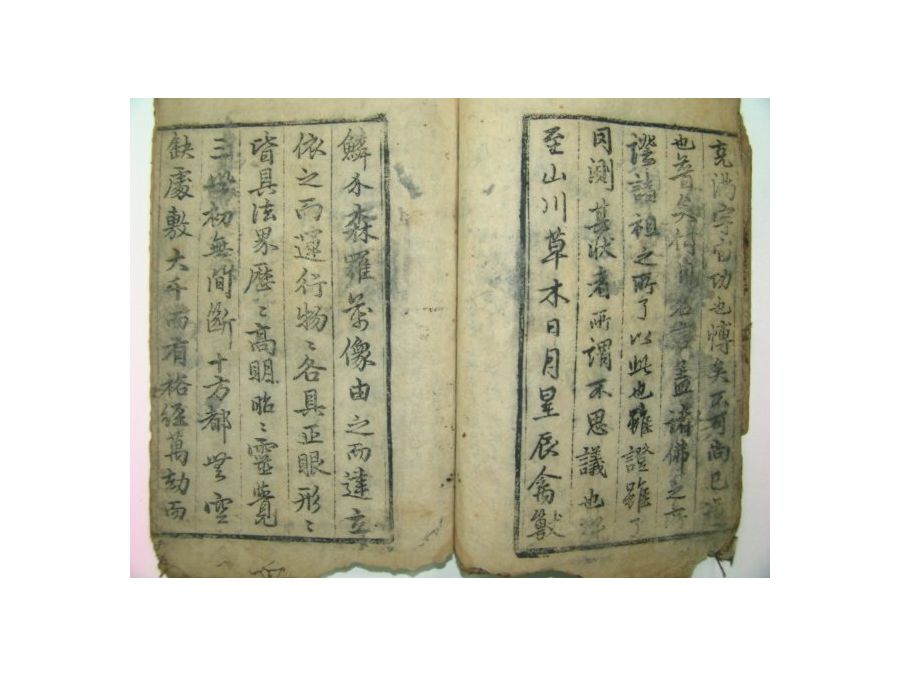 充滿字宙功也博矣不可尚已
也普矣盖諸佛之所
證諸祖之所了以此也雖證雖了
罔測其狀者所謂不思議也
至山川草木日月星辰禽獸
鱗介森羅萬像由之而建立
依之而運行物〻各具正眼形〻
皆具法界歷〻高明昭〻靈覺
三初無間斷十方都無空
缺處敷大千而有裕經萬劫而